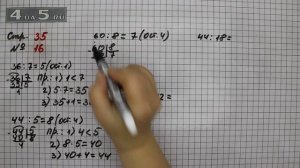 4 ДА 5.RU
Стр. 35
№ 16
36:7=5(ост.1)
36|7
35|5
1
Пр.: 1) 1<7
2) 5·7=35
3) 35+1=3
44:5=8(ост.4)
44|5
40|8
4
Пр.: 1) 4<5
2) 8·5=40
3) 40+4=44
60:8=7(ост.
60|8
7
2=
44:18=